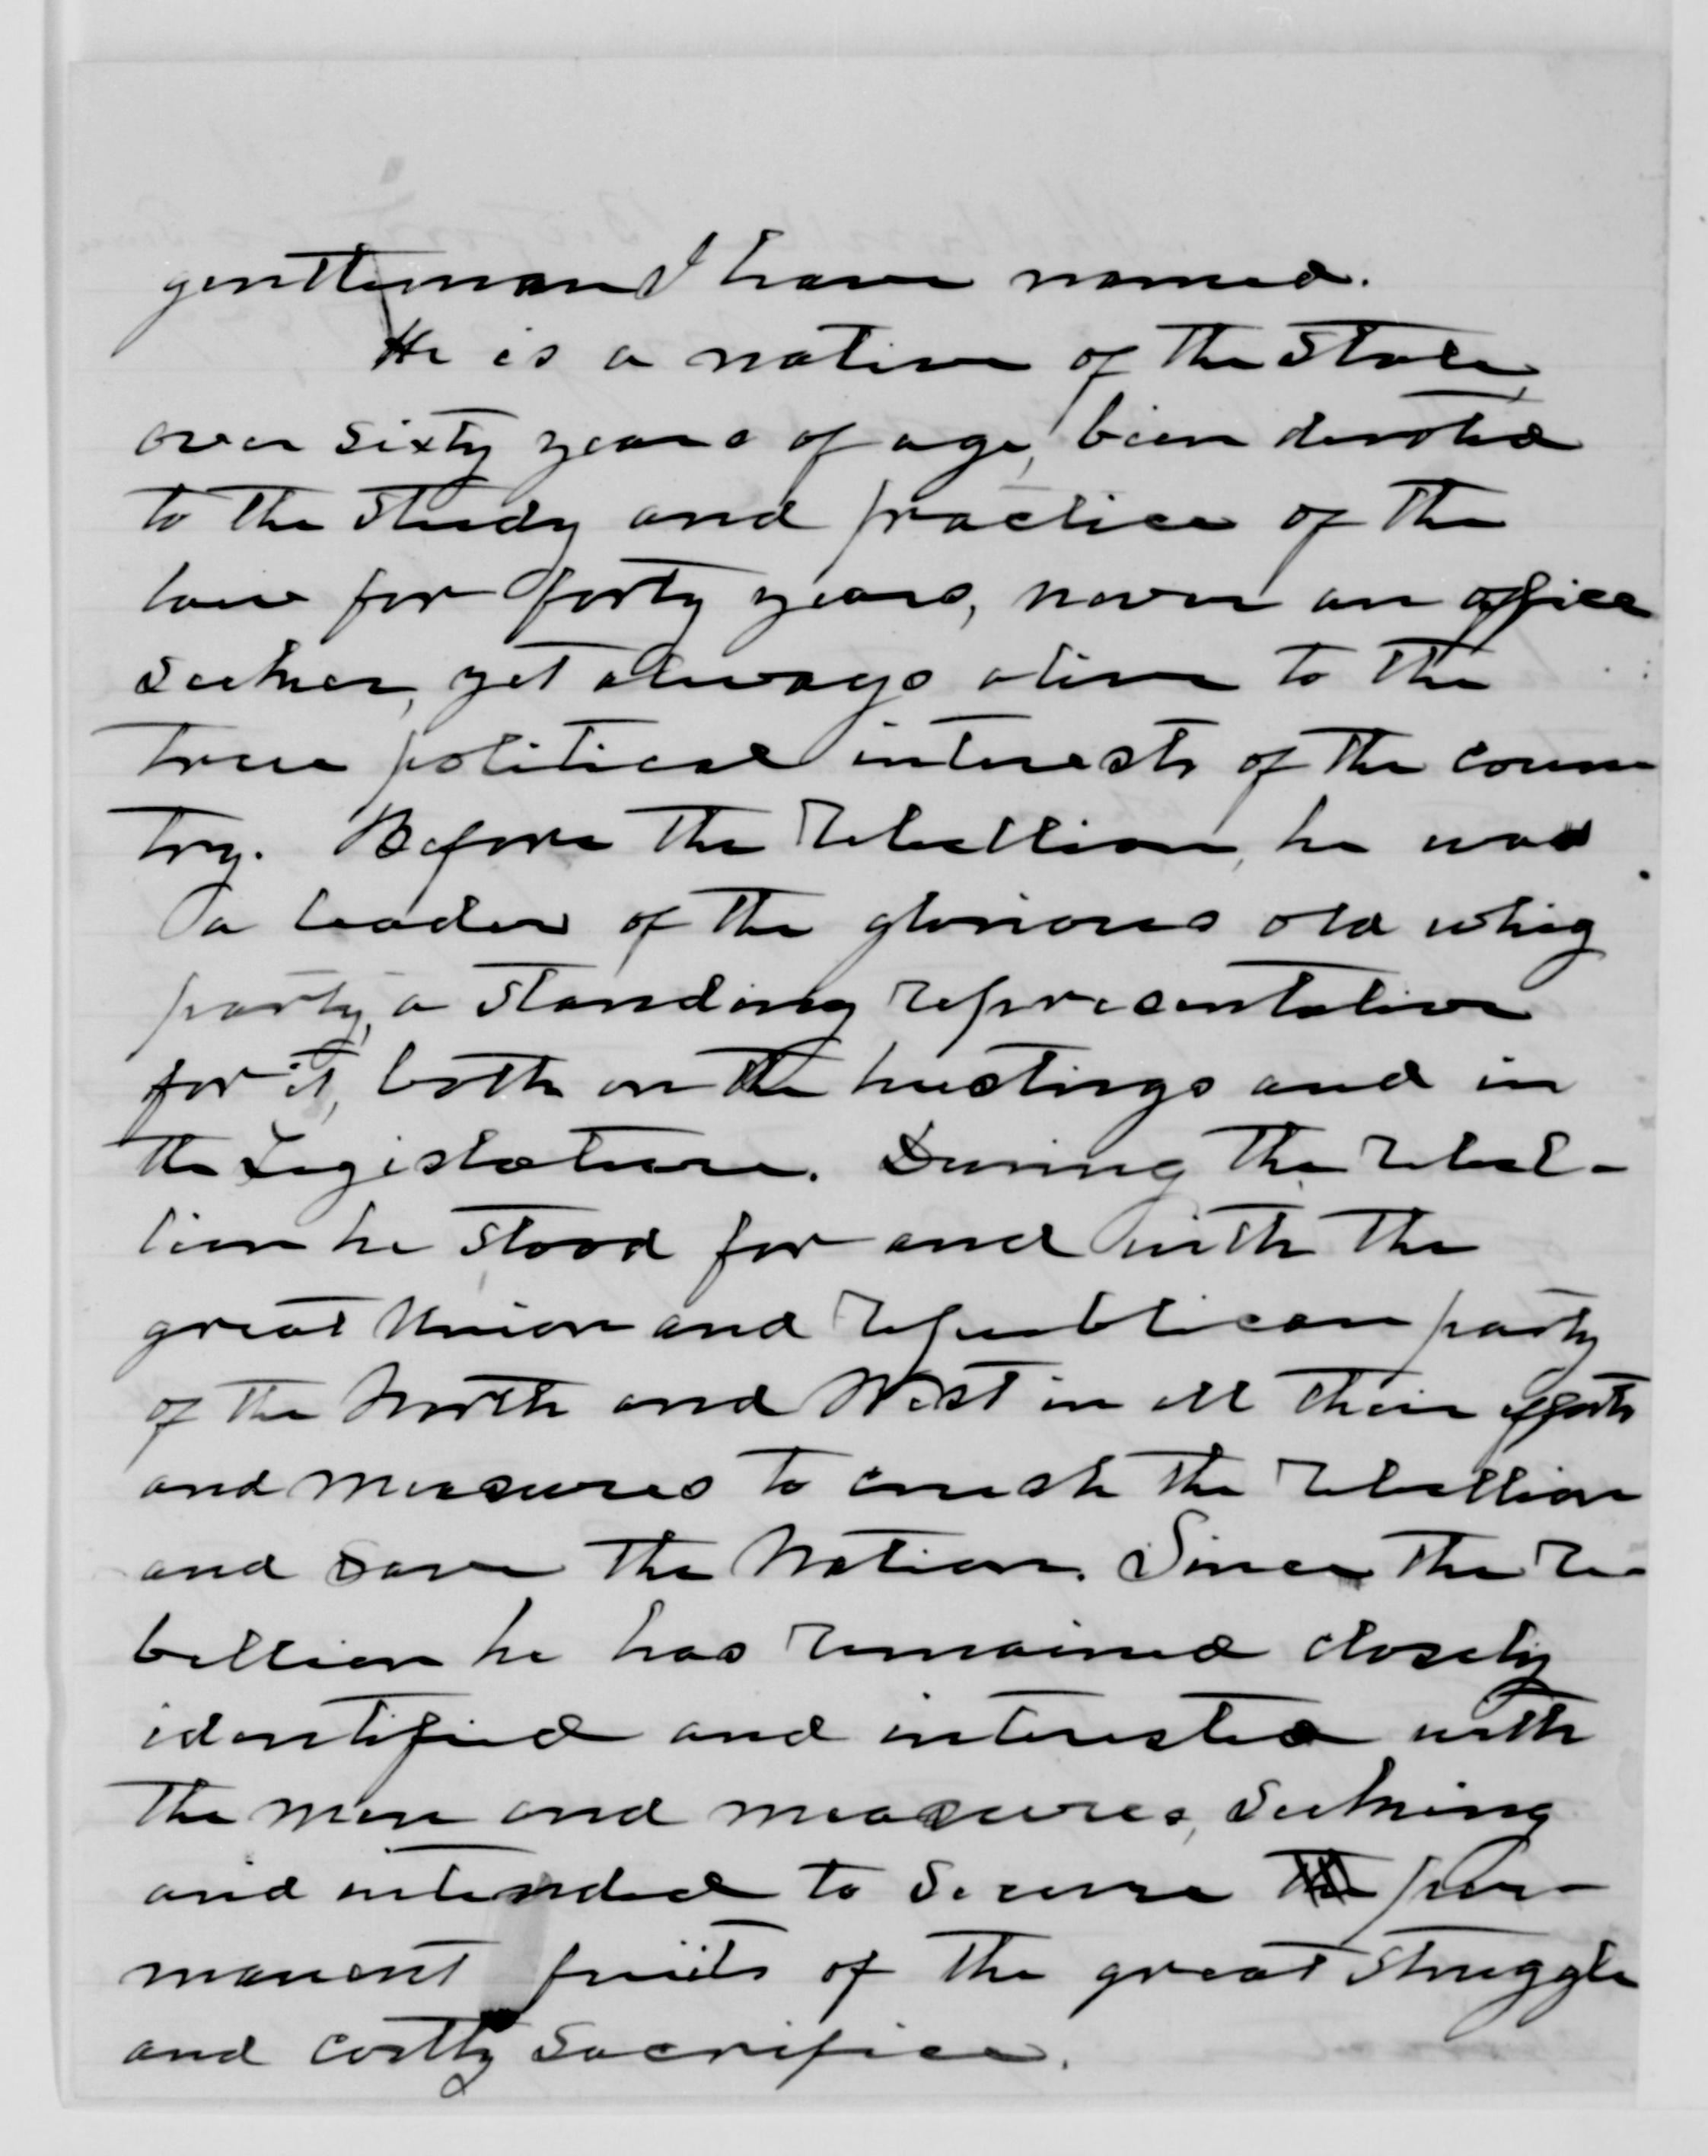 gentleman I have named.
He is a native of the State,
over sixty years of age, been devoted
to the study and practice of the
law for forty years, never an office
seeker, yet always alive to the
true political interests of the coun
try. Before the Rebellion, he was
a leader of the glorious old whig
party, a standing representative
for it, both on the hustings and in
the Legislature. During the Rebel-
lion he stood for and with the
great Union and Republican party
of the North and West in all their efforts
and measures to crush the Rebellion
and save the Nation. Since the Re-
bellion he has remained closely
identified and interested with
the men and measures, seeking
and intended to secure the per-
manent fruits of the great struggle
and costly sacrifice.